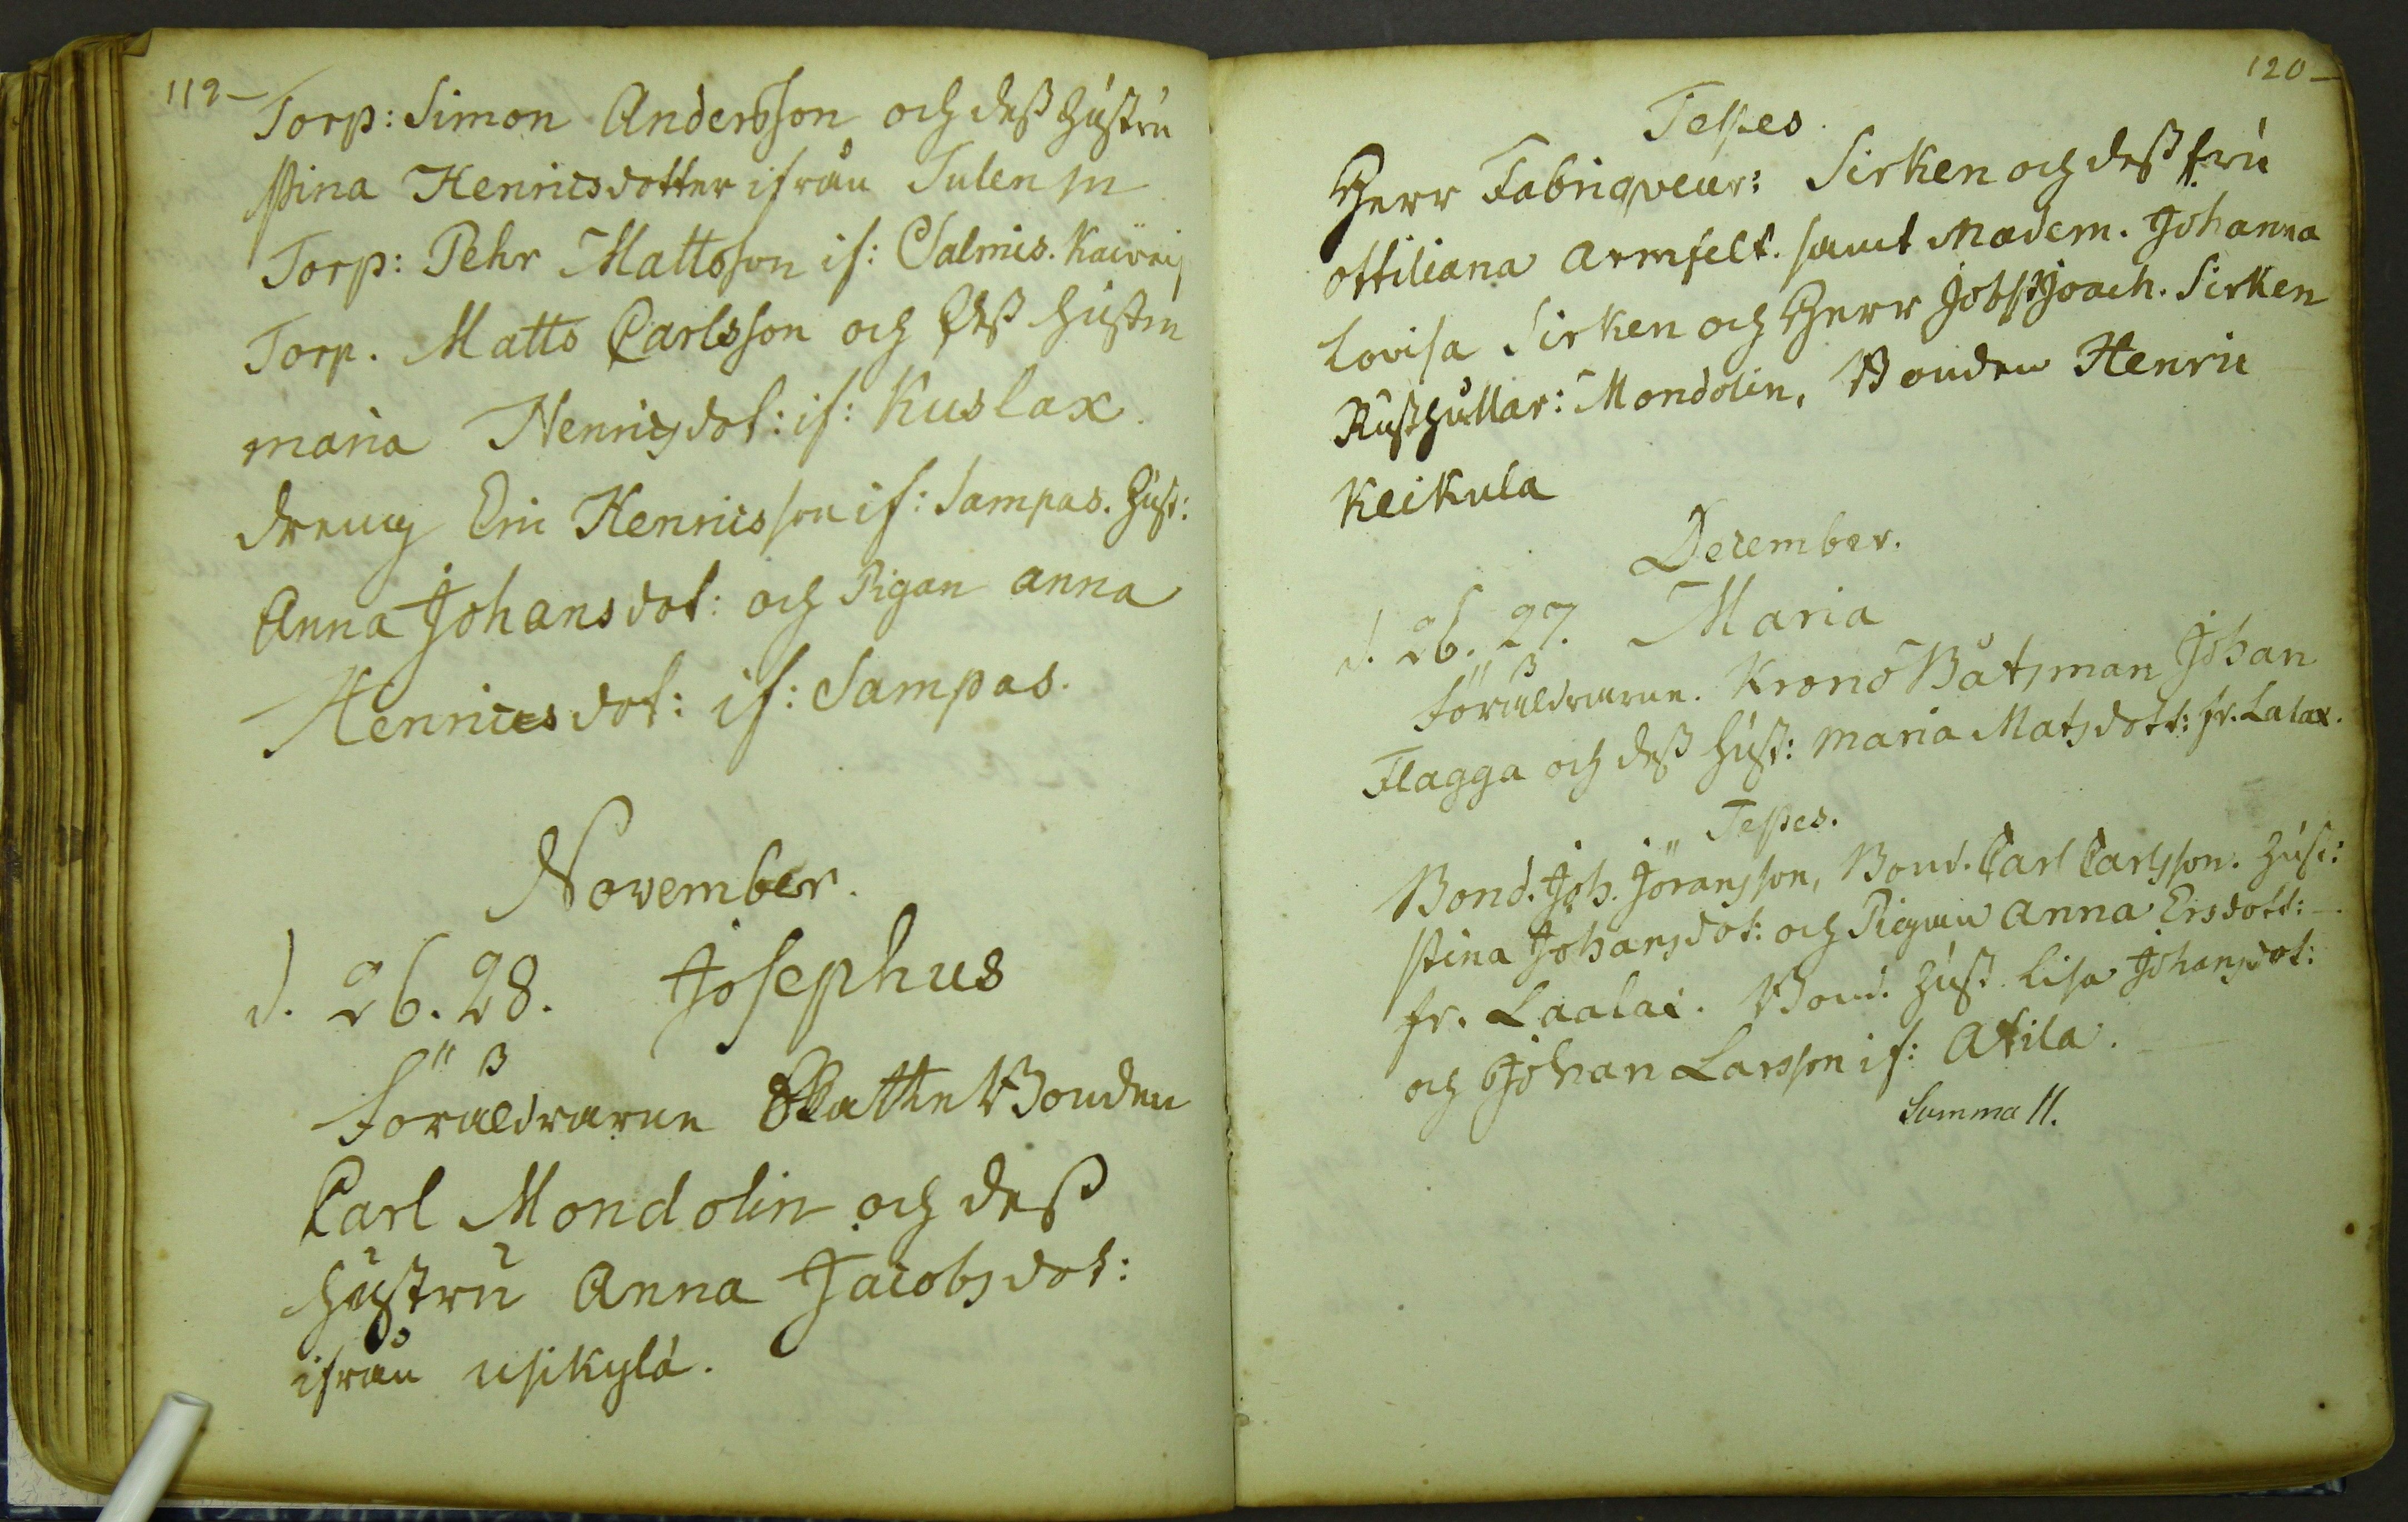 119
Torp: Simon Andersson och dess hustru
Stina Henricsdotter ifrån Tulen
Torp: Pehr Mattsson if: Salmis.
Torp. Matts Carlsson och dess hustru
maria Henricsdot: if: Kuslax.
dreng Eric Henricsson if: Sampas. hust:
Anna Johansdot: och Pigan anna
Henricsdot: if: Sampas.
November.
d. 26. 28. Josephus
Föräldrarne Skatte Bonden
Carl Mondolin och dess
hustru Anna Jacobsdot:
ifrån usikylä.
120
Testes
Herr Fabriqveur: Sirken och dess fru
ottiliana Armfelt. samt Madem. Johanna
Lovisa Sirken och Herr Jobst Joach. Sirken
Rusthållar: Mondolin, Bonden Henric
Keikula
December.
d. 26. 27. Maria
Föräldrarne. Krono Båtsman Johan
Flagga och dess hust: maria Matsdott: fr. Lalax.
Testes.
Bond. Joh. Jöransson, Bond. Carl Carlsson. hust:
Stina Johansdot: och Pigan Anna Ersdott:
fr. Laalai. Bond. hust. Lisa Johansdot:
och Johan Larsson if: Atila.
Summa 11.